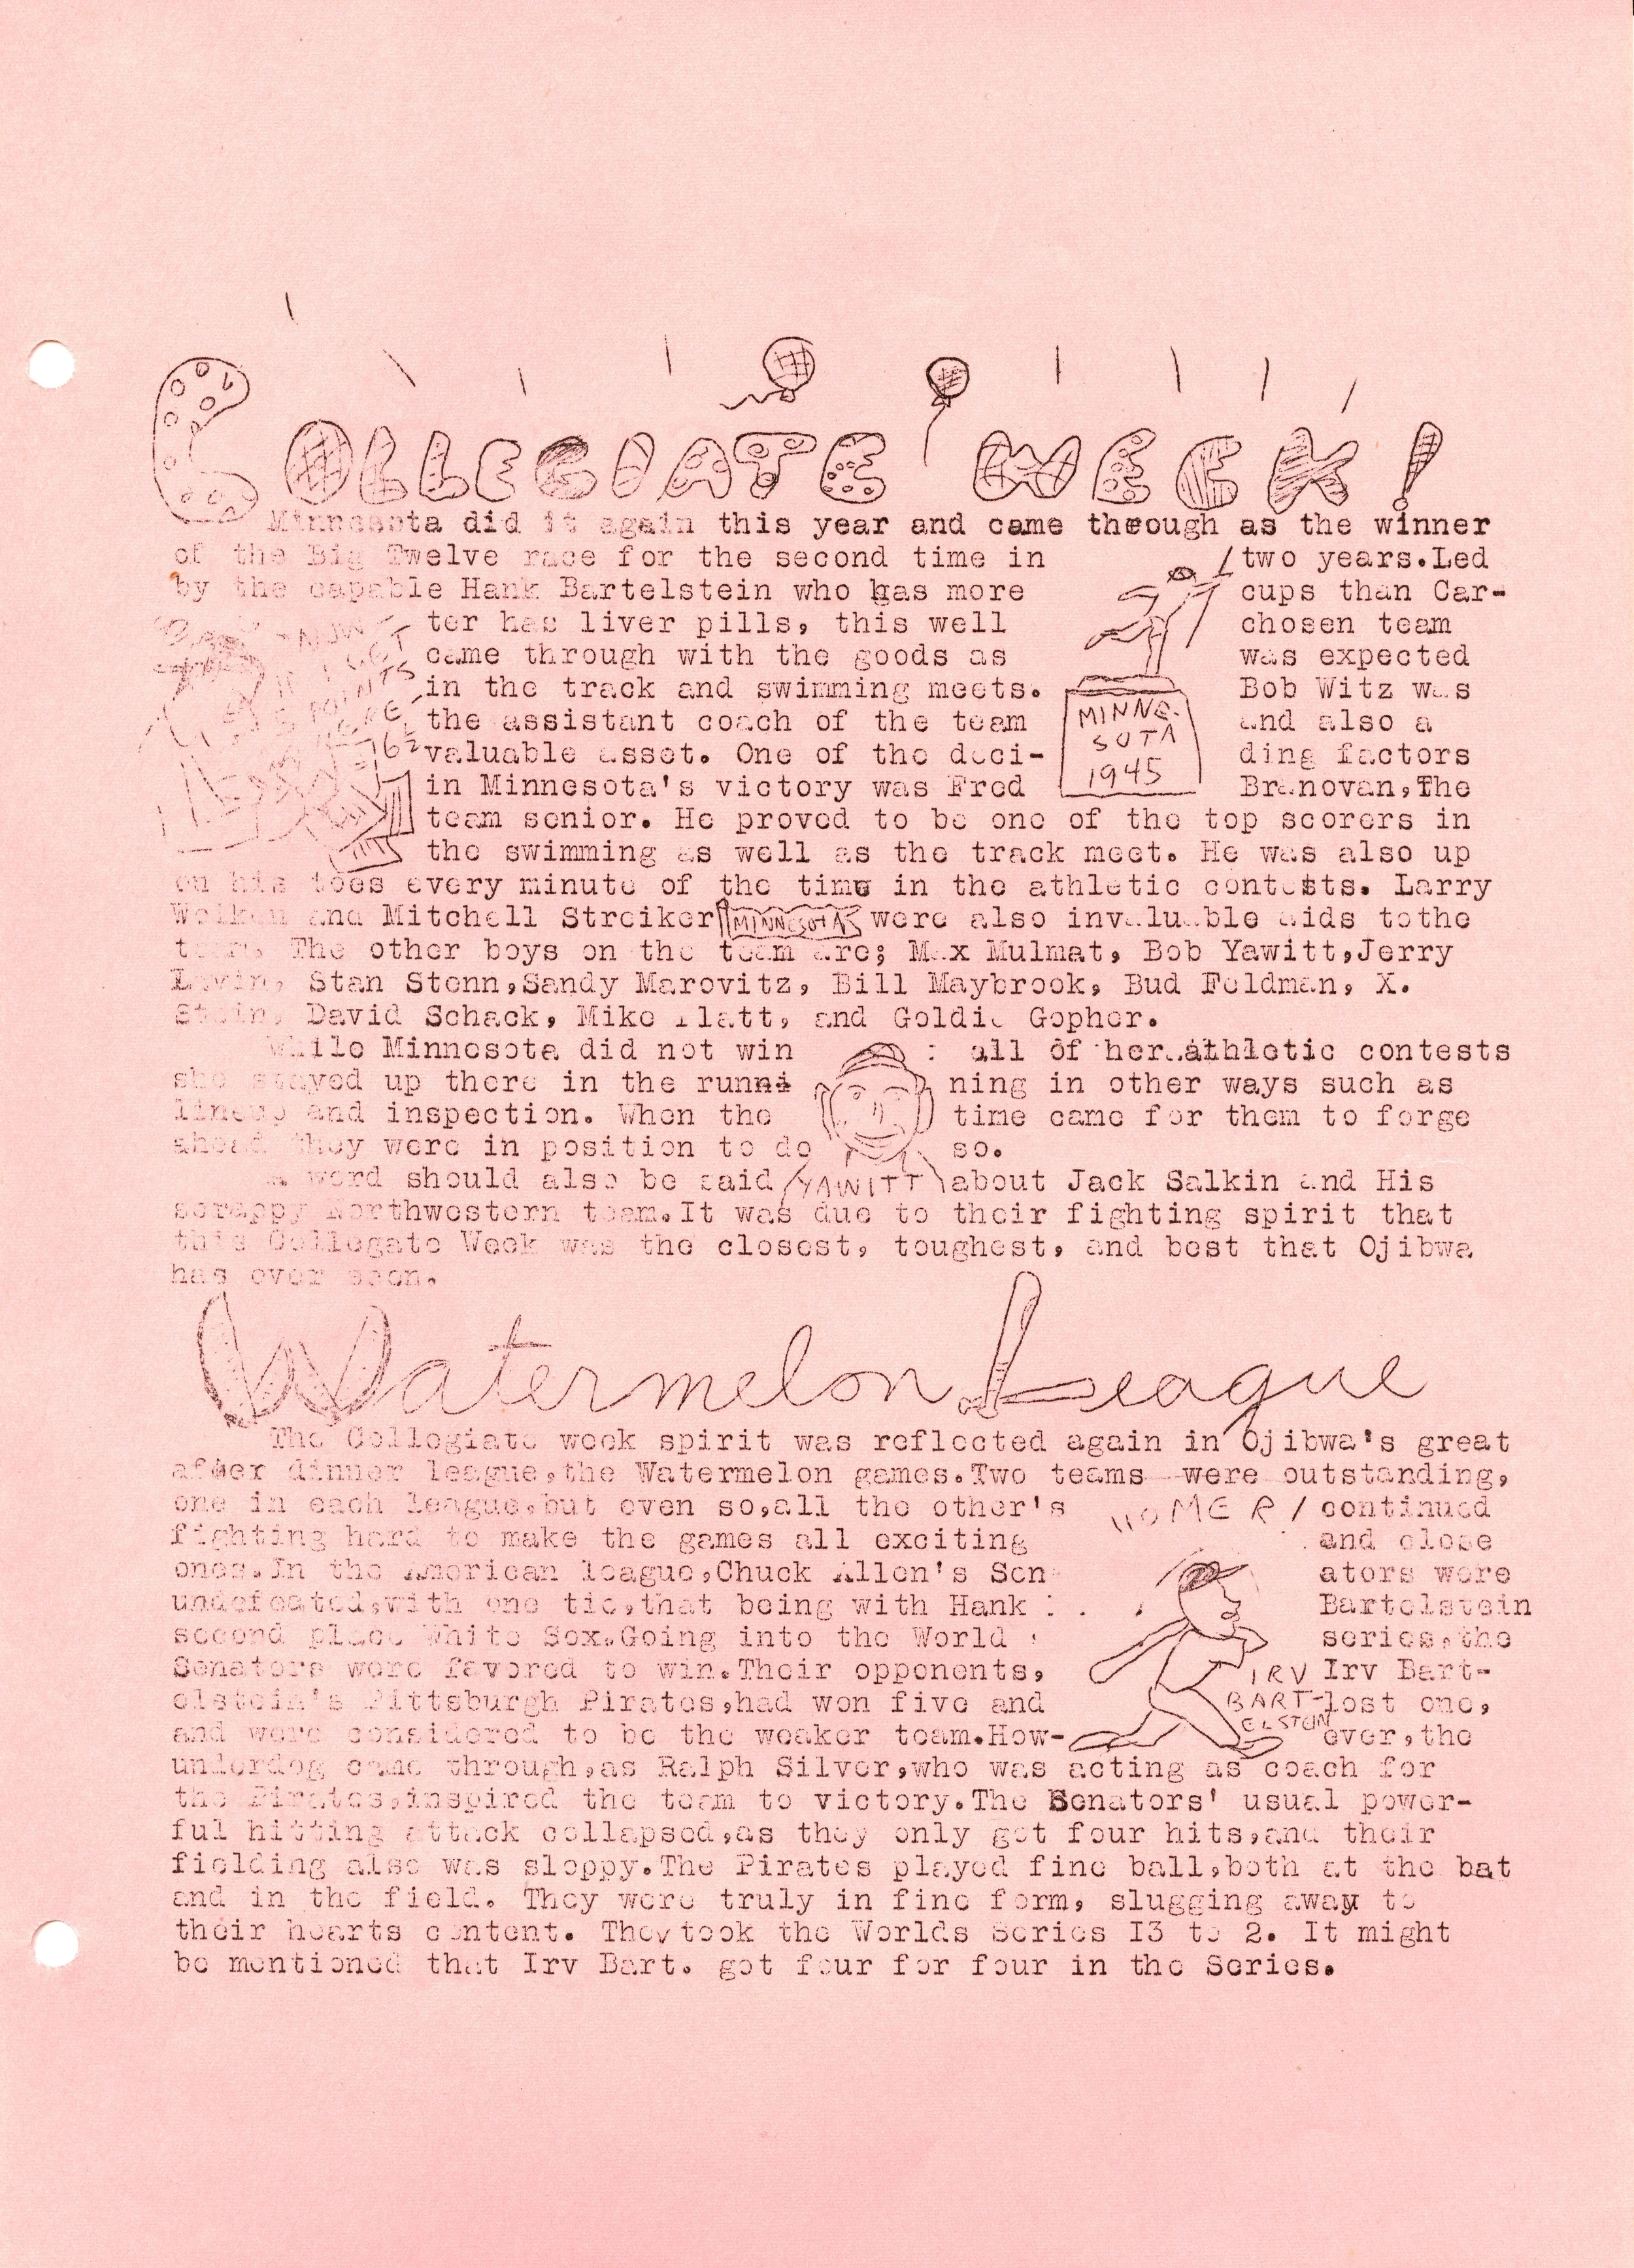 COLLEGIATE WEEK!
Minnesota did it again this year and came through as the winner
of the Big Twelve race for the second time in two years.Led
by the capable Hank Bartelstein who has more cups than Car-
ter has liver pills, this well chosen team
came through with the goods as was expected
in the track and swimming meets. Bob Witz was
the assistant coach of the team and also a
valuable asset. One of the deci- ding factors
in Minnesota's victory was Fred Branovan,The
team senior. He proved to be one of the top scorers in
the swimming as well as the track meet. He was also up
on his toes every minute of the time in the athletic contests. Larry
Wolken and Mitchell Streiker were also invaluable aids tothe
team. The other boys on the team are; Max Mulmat, Bob Yawitt,Jerry
Levin, Stan Stenn,Sandy Marovitz, Bill Maybrook, Bud Feldman, X.
Stein, David Schack, Mike Platt, and Goldie Gopher.
While Minnesota did not win all of her athletic contests
she stayed up there in the runni ning in other ways such as
lineup and inspection. When the time came for them to forge
ahead they were in position to do so.
A word should also be said about Jack Salkin and His
scrappy Northwestern team.It was due to their fighting spirit that
this Collegate Week was the closest, toughest, and best that Ojibwa
has ever seen.
NOW - IF I GET 5 POINTS HERE -
62
MINNE-
SOTA
1945
MINNESOTA
YAWITT
Watermelon League
The Collegiate week spirit was reflected again in Ojibwa's great
after dinner league,the Watermelon games.Two teams were outstanding,
one in each league,but even so,all the other's continued
fighting hard to make the games all exciting and close
ones.In the American league,Chuck Allen's Sen ators were
undefeated,with one tie,that being with Hank Bartelstein
second place White Sox.Going into the World series,the
Senators were favored to win.Their opponents, Irv Bart-
elstein's Pittsburgh Pirates,had won five and lost one,
and were considered to be the weaker team.How- ever,the
underdog came through,as Ralph Silver,who was acting as coach for
the Pirates,inspired the team to victory.The Senators' usual power-
ful hitting attack collapsed,as they only got four hits,and their
fielding also was sloppy.The Pirates played fine ball,both at the bat
and in the field. They were truly in fine form, slugging away to
their hearts content. They took the Worlds Series I3 to 2. It might
be mentioned that Irv Bart. got four for four in the Series.
HOMER!
IRV
BART-
ELSTON